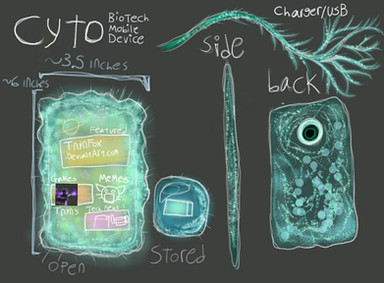 Cyto BioTech
Mobile
Device
Charger/USB
Side
back
~3.5 inches
~6 inches
Feature
TnmFox
DeviantArt.com
Games
Memes
Open
Stored